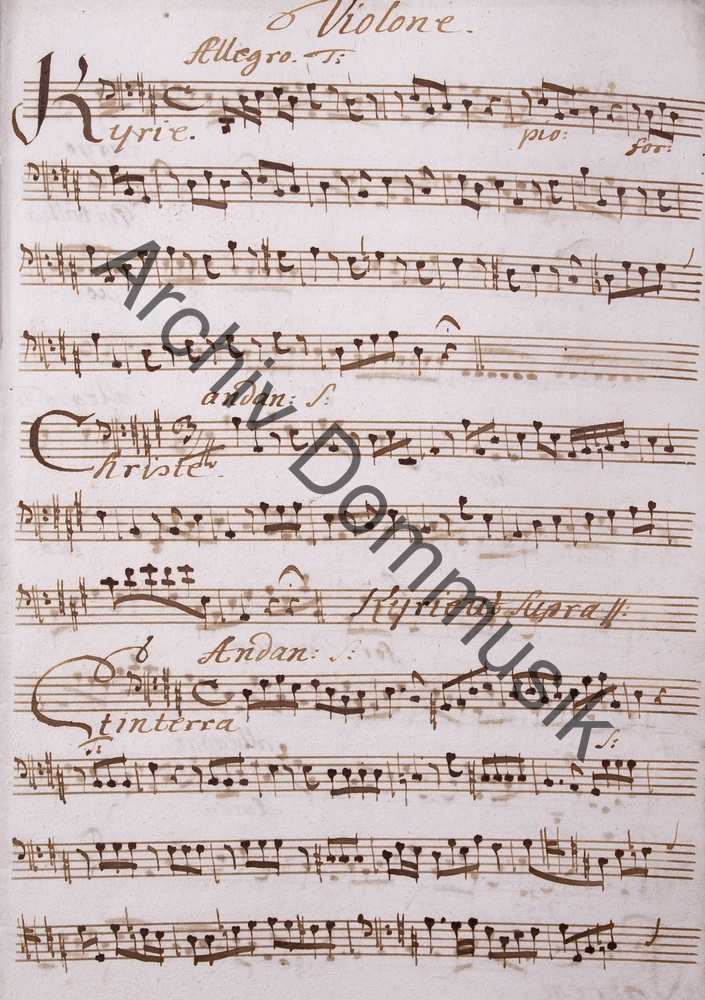 Violone.
Allegro. T:
Kyrie. pio: for:
andan: S:
Christe.
Kyrie ut Supra
Andan: S:
Et in terra
T: S:
Archiv Dommusik